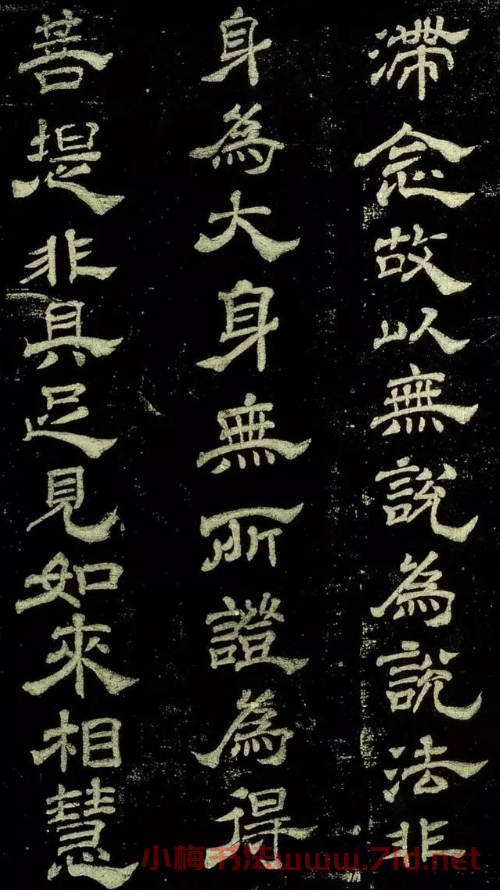 滯念故以無說為說法非
身為大身無所證為得
菩提非具足見如來相慧
小梅书法www.7ld.net